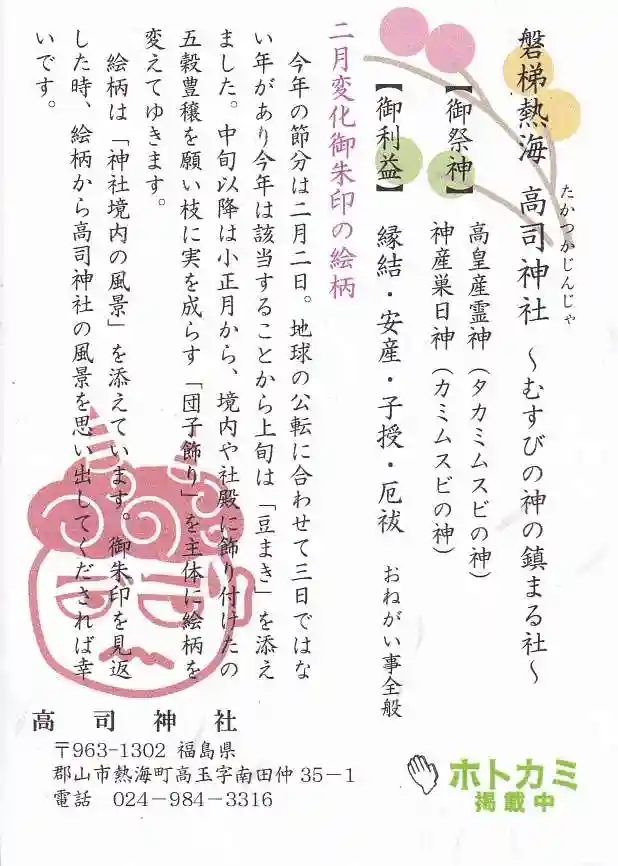 磐梯熱海 高司神社 ～むすびの神の鎮まる社～
たかつかじんじゃ
【御祭神】 高皇産霊神（タカミムスビの神）
神産巣日神（カミムスビの神）
【御利益】 縁結・安産・子授・厄祓 おねがい事全般
二月変化御朱印の絵柄
今年の節分は二月二日。地球の公転に合わせて三日ではな
い年があり今年は該当することから上旬は「豆まき」を添え
ました。中旬以降は小正月から、境内や社殿に飾り付けたの
五穀豊穣を願い枝に実を成らす「団子飾り」を主体に絵柄を
変えてゆきます。
絵柄は「神社境内の風景」を添えています。御朱印を見返
した時、絵柄から高司神社の風景を思い出してくだされば幸
いです。
高司神社
〒963-1302 福島県
郡山市熱海町高玉字南田仲35-1
電話 024-984-3316
ホトカミ
掲載中